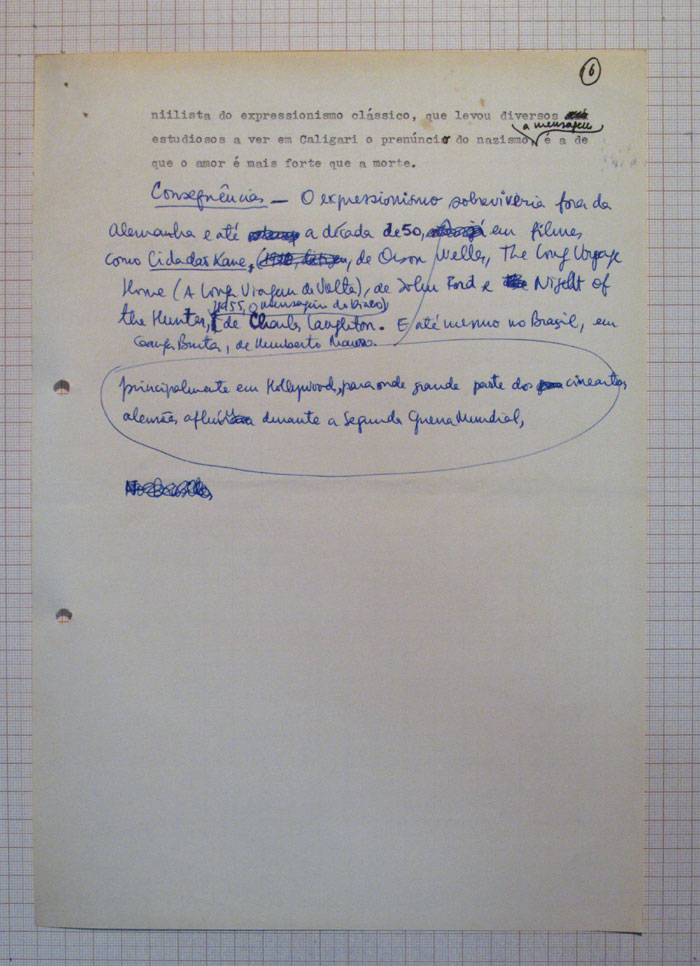 6
niilista do expressionismo clássico, que levou diversos
a mensagem
estudiosos a ver em Caligari o prenúncio do nazismo, é a de
que o amor é mais forte que a morte.
Consequências — O expressionismo sobreviveria fora da
Alemanha e até a década de 50, em filmes
como Cidadão Kane, de Orson Welles, The Long Voyage
Home (A Longa Viagem de Volta), de John Ford e Night of
(1955, O mensageiro do Diabo)
the Hunter, de Charles Laughton. E até mesmo no Brasil, em
Ganga Bruta, de Humberto Mauro.
principalmente em Hollywood, para onde grande parte dos cineastas
alemães afluiu durante a Segunda Guerra Mundial,